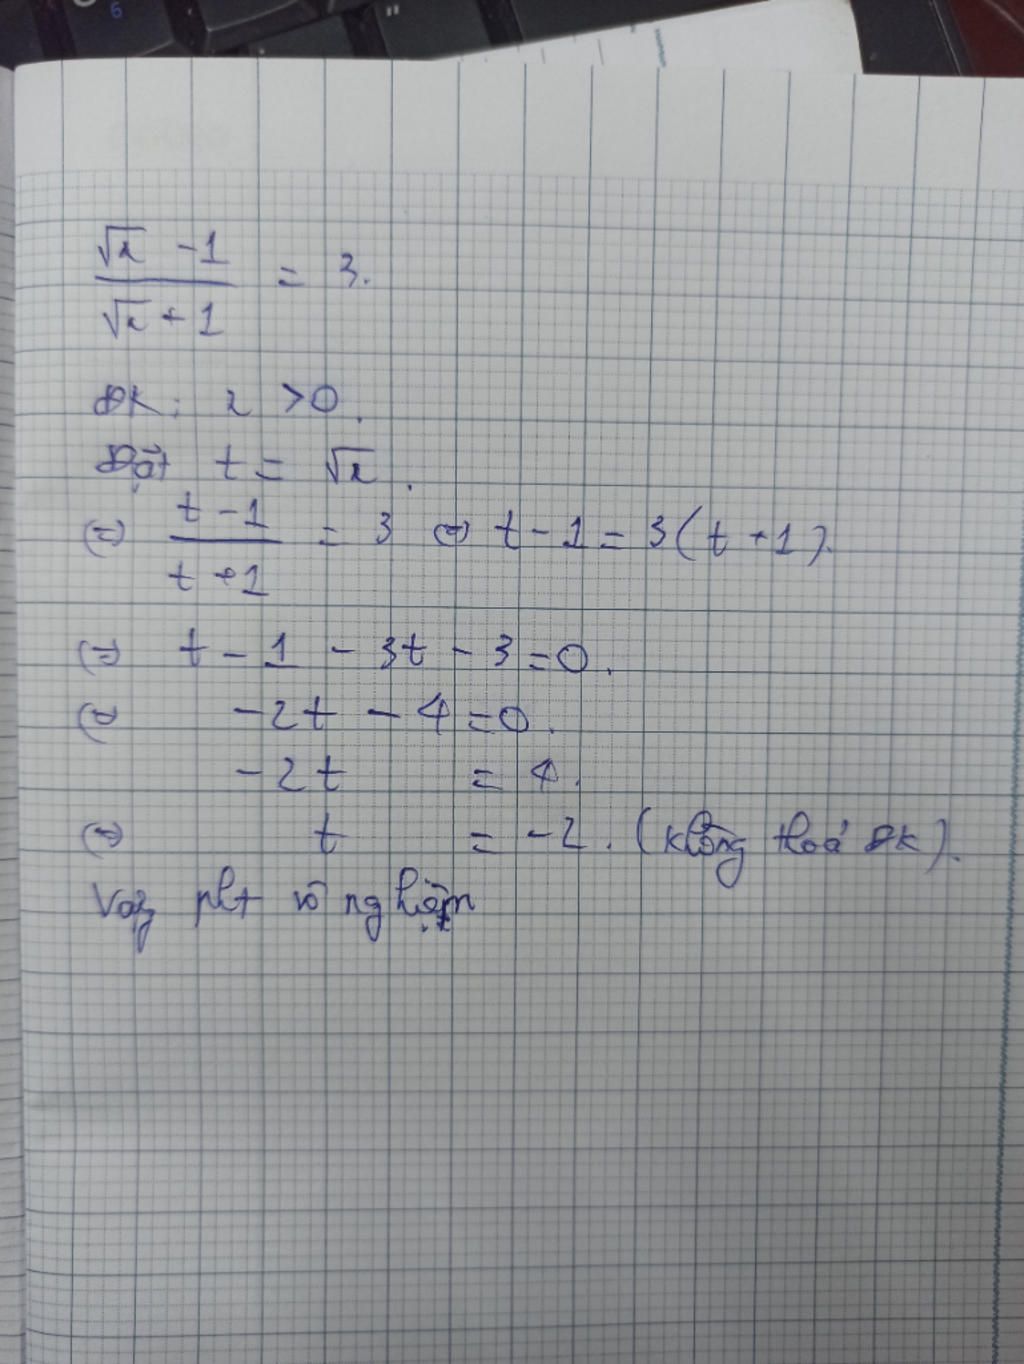 6
"
√x - 1 / √x + 1 = 3.
ĐK: x > 0.
Đặt t = √x.
(=) t - 1 / t + 1 = 3 (=) t - 1 = 3(t + 1).
(=) t - 1 - 3t - 3 = 0.
(=) -2t - 4 = 0.
-2t = 4.
(=) t = -2. (không thoả ĐK).
Vậy pht vô nghiệm